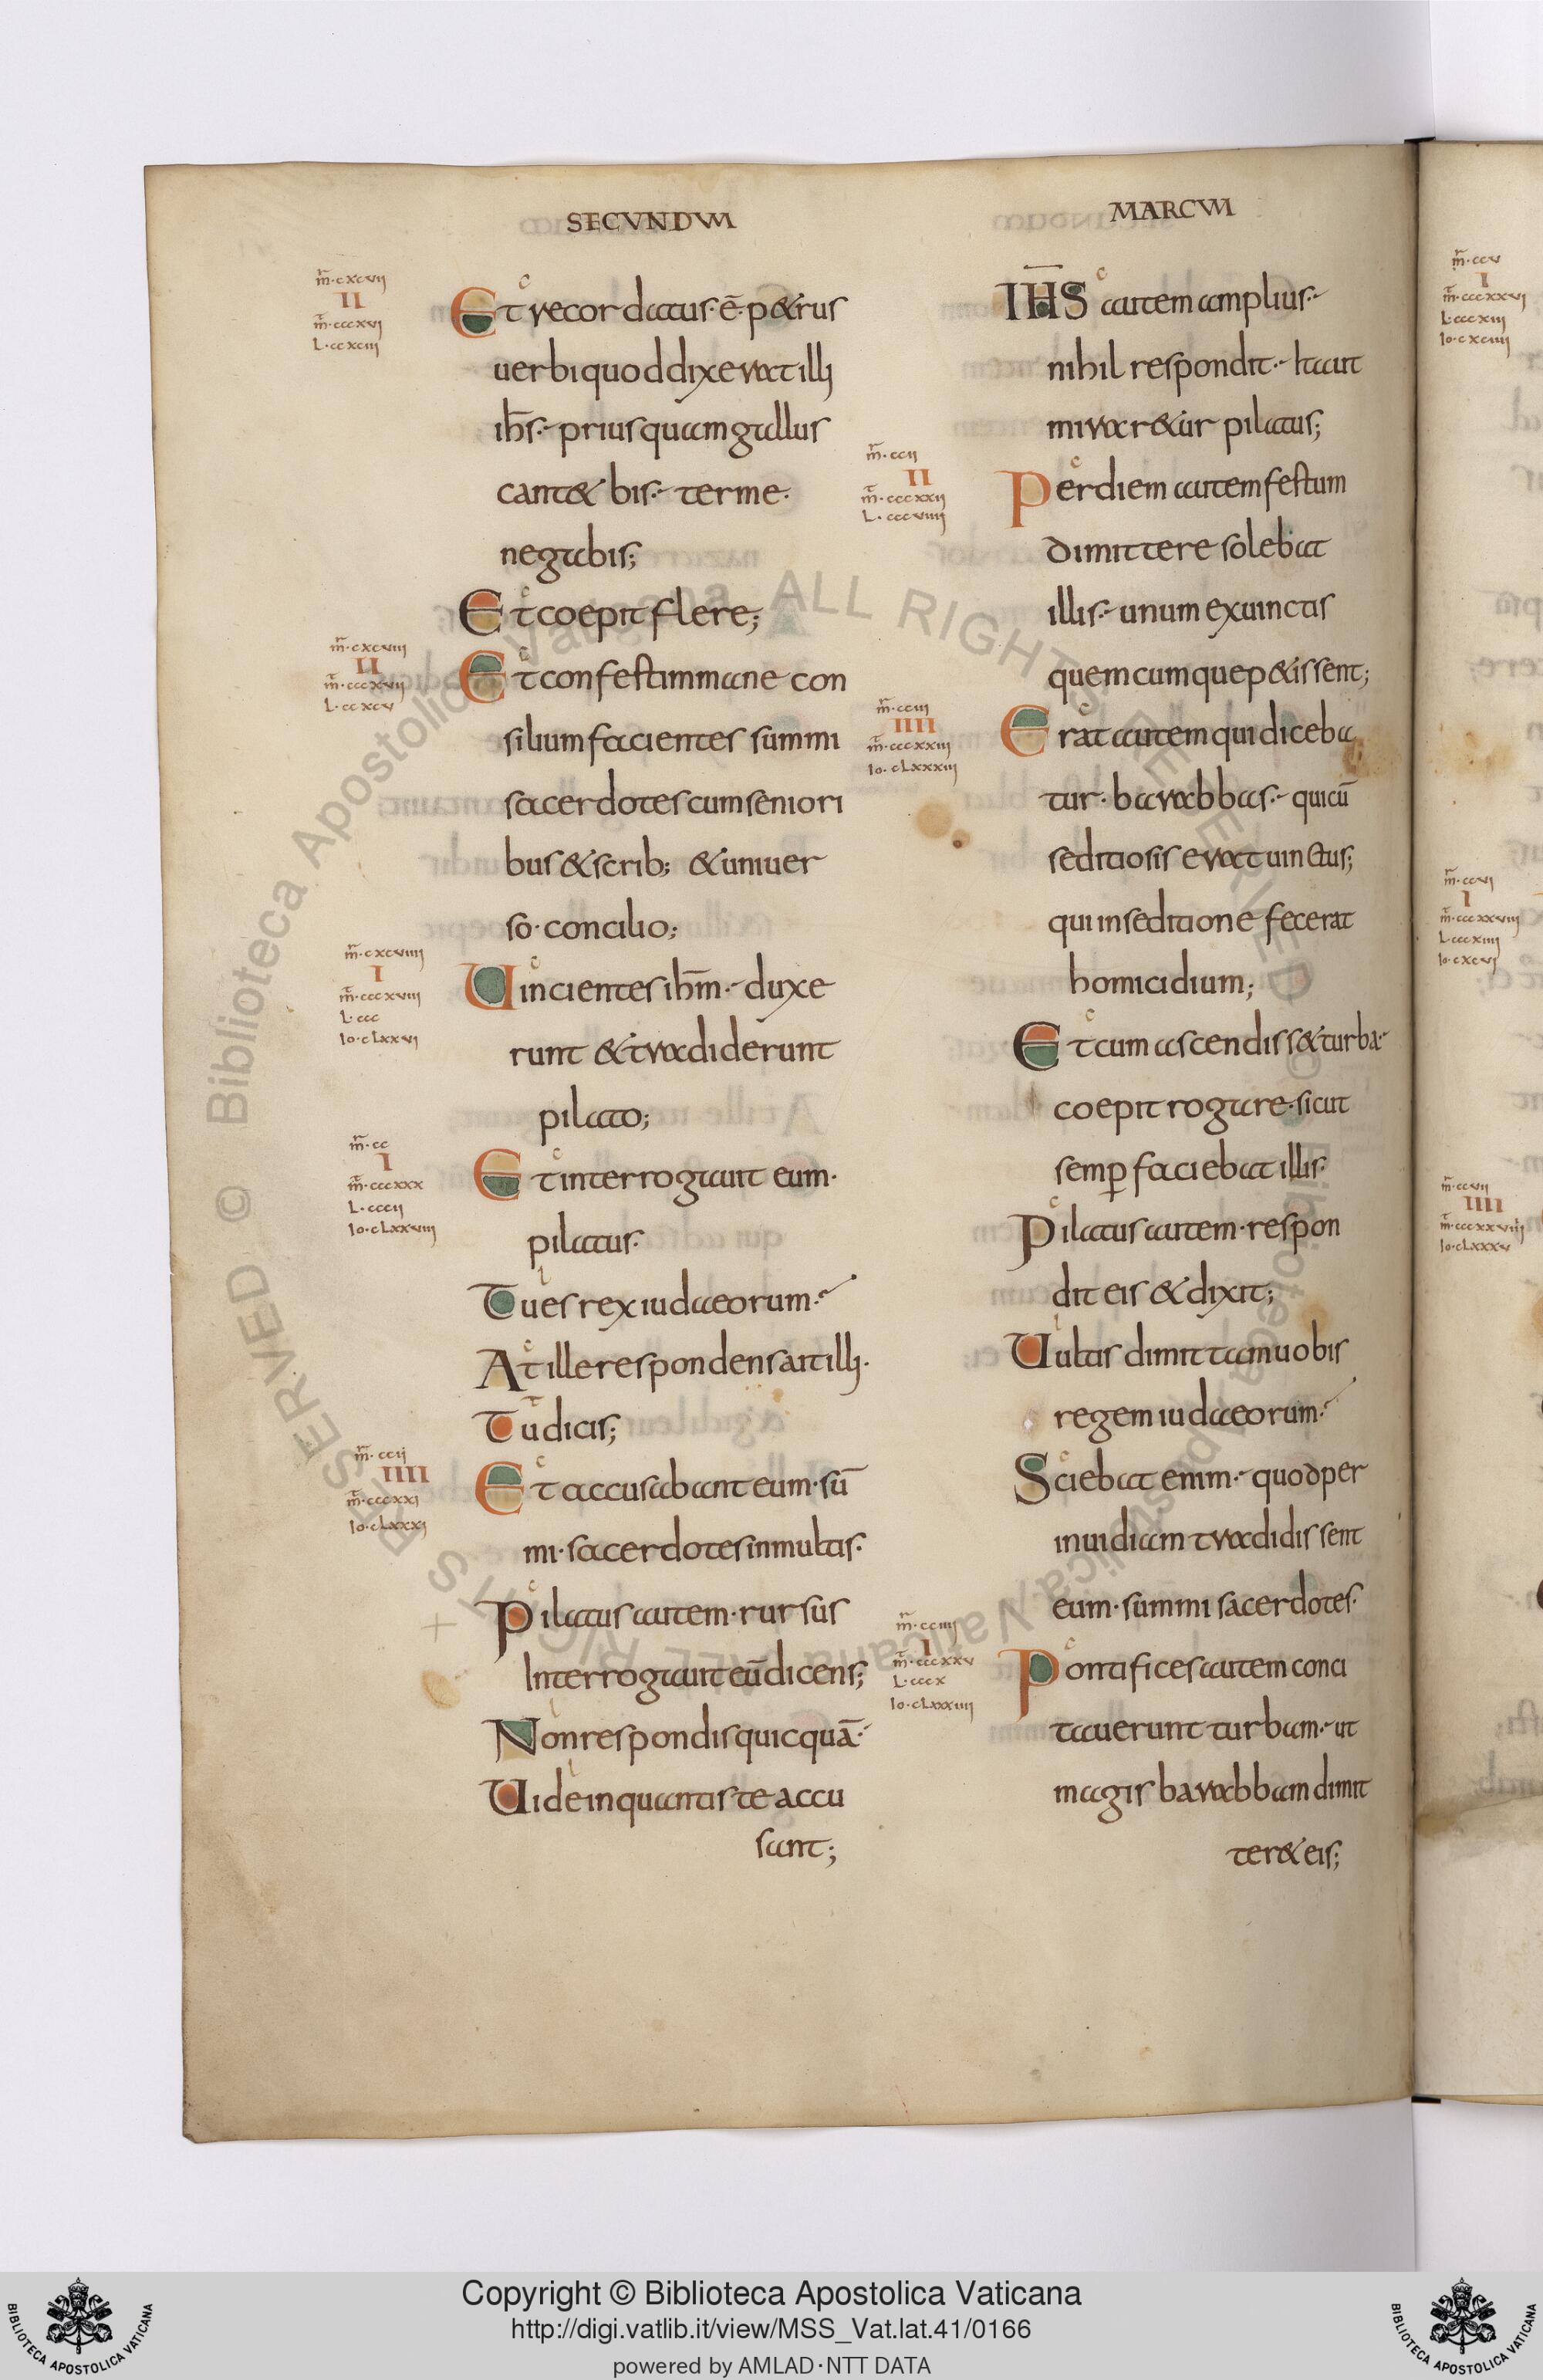 SECVNDVM
mr̄·cxcvii
II
mt̄·cccxvi
L·ccxciii
Et recordatus·ē·p&rus
uerbi quod dixerat illi
ih̄s·priusquam gallus
cant& bis·ter me·
negabis;
Et coepit flere;
mr̄·cxcviii
II
mt̄·cccxvii
L·ccxcv
Et confestim mane con
silium facientes summi
sacerdotes cum seniori
bus & scrib; & uniuer
so·concilio;
mr̄·cxcviiii
I
mt̄·cccxviii
L·ccc
Io·clxxvi
Uincientes ih̄m·duxe
runt & tradiderunt
pilato;
mr̄·cc
I
mt̄·cccxxx
L·cccii
Io·clxxviiii
Et interrogauit eum·
pilatus·
Tu es rex iudaeorum·
At ille respondens ait illi·
Tu dicis;
mr̄·ccii
IIII
mt̄·cccxxi
Io·clxxxi
Et accusabant eum·sū
mi·sacerdotes in multis·
Pilatus autem·rursus
Interrogauit eū dicens;
Non respondis quicquā·
Uide in quantis te accu
sant;
MARCVM
IHS autem amplius·
nihil respondit·Ita ut
mirar&ur pilatus;
mr̄·ccii
II
mt̄·cccxxii
L·cccviiii
Per diem autem festum
dimittere solebat
illis·unum ex uinctis
quemcumque p&issent;
mr̄·cciii
IIII
mt̄·cccxxiii
Io·clxxxiii
Erat autem qui diceba
tur·barabbas·qui cū
seditiosis erat uinctus;
qui in seditione fecerat
homicidium;
Et cum ascendiss& turba·
coepit rogare·sicut
semp̱ faciebat illis·
Pilatus autem·respon
dit eis & dixit;
Uultis dimittam uobis
regem iudaeorum·
Sciebat enim·quod per
inuidiam tradidissent
eum·summi sacerdotes·
mr̄·cciiii
I
mt̄·cccxxv
L·cccx
Io·clxxxiiii
Pontifices autem conci
tauerunt turbam·ut
magis barabbam dimit
ter& eis;
mr̄·ccv
I
mt̄·cccxxvi
L·cccxiii
Io·cxciiii
mr̄·ccvi
I
mt̄·cccxxviii
L·cccxiiii
Io·cxcvi
mr̄·ccvii
IIII
mt̄·cccxxviiii
Io·clxxxv
© Biblioteca Apostolica Vaticana ALL RIGHTS RESERVED
© Biblioteca Apostolica Vaticana ALL RIGHTS RESERVED
Copyright © Biblioteca Apostolica Vaticana
http://digi.vatlib.it/view/MSS_Vat.lat.41/0166
powered by AMLAD·NTT DATA
BIBLIOTECA APOSTOLICA VATICANA
BIBLIOTECA APOSTOLICA VATICANA